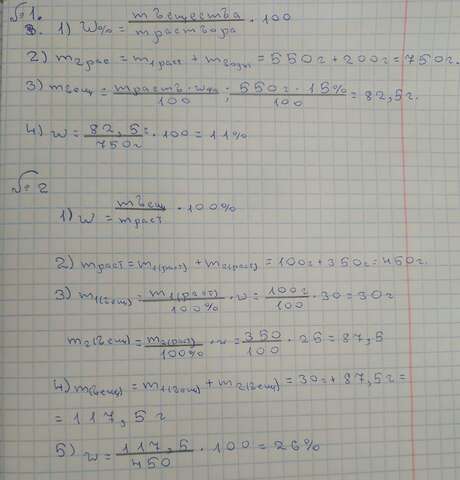 №1.
3. 1) W% = m вещества / m раствора · 100
2) m2рас = m1раст + mводы = 550г + 200г = 750г.
3) mвещ = mраств · w% / 100 ; 550г · 15% / 100 = 82,5г.
4) w = 82,5г / 750г · 100 = 11%
№2
1) w = mвещ / mраст · 100%
2) mраст = m1(раст) + m2(раст) = 100г + 350г = 450г.
3) m1(вещ) = m1(раст) / 100% · w = 100г / 100 · 30 = 30г
m2(вещ) = m2(рас) / 100% · w = 350 / 100 · 25 = 87,5
4) m(вещ) = m1(вещ) + m2(вещ) = 30г + 87,5г =
= 117,5г
5) w = 117,5 / 450 · 100 = 26%